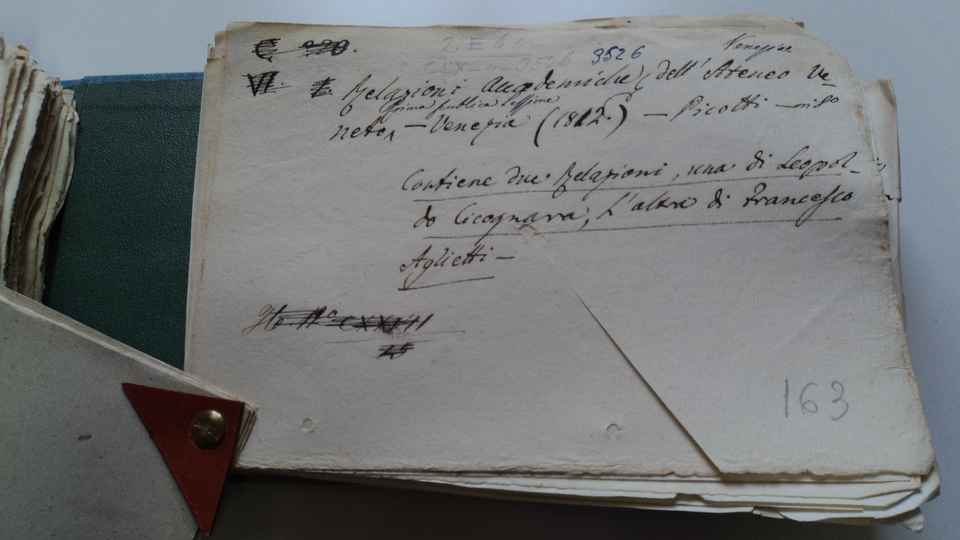 3526 Venezia
VI. Relazioni Accademiche dell'Ateneo Ve-
prima pubblica sessione
neto, - Venezia (1812.) - Picotti -
Contiene due Relazioni, una di Leopol-
do Cicognara, l'altra di Francesco
Aglietti -
CXXIVII
25
163